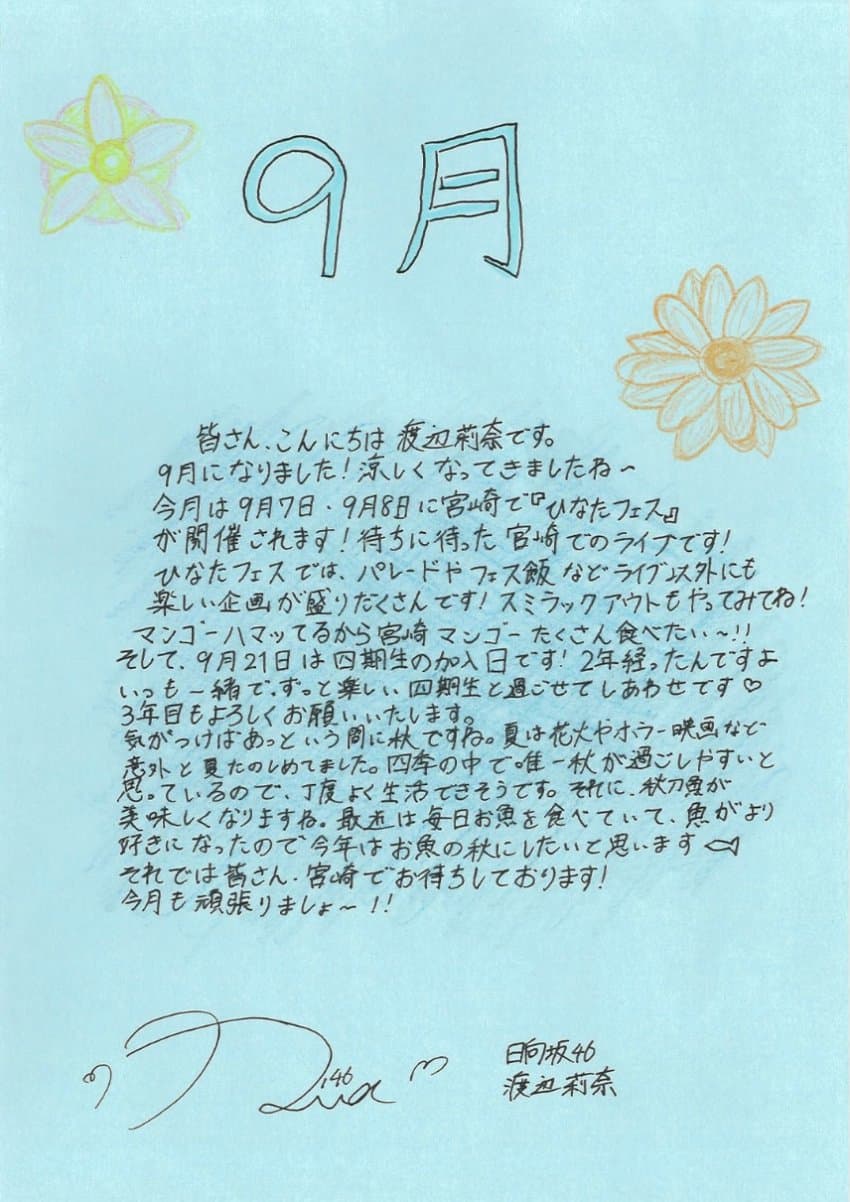 9月
皆さん、こんにちは 渡辺莉奈です。
9月になりました!涼しくなってきましたね〜
今月は9月7日・9月8日に宮崎で『ひなたフェス』
が開催されます!待ちに待った宮崎でのライブです!
ひなたフェスでは、パレードやフェス飯などライブ以外にも
楽しい企画が盛りだくさんです!スミラックアウトもやってみてね!
マンゴーハマッてるから宮崎マンゴーたくさん食べたい〜!!
そして、9月21日は四期生の加入日です!2年経ったんですよ
いつも一緒で、ずっと楽しい四期生と過ごせてしあわせです♡
3年目もよろしくお願いいたします。
気がつけばあっという間に秋ですね。夏は花火やホラー映画など
意外と夏たのしめてました。四季の中で唯一秋が過ごしやすいと
思っているので、丁度よく生活できそうです。それに、秋刀魚が
美味しくなりますね。最近は毎日お魚を食べていて、魚がより
好きになったので今年はお魚の秋にしたいと思います
それでは皆さん、宮崎でお待ちしております!
今月も頑張りましょ〜!!
日向坂46
渡辺莉奈